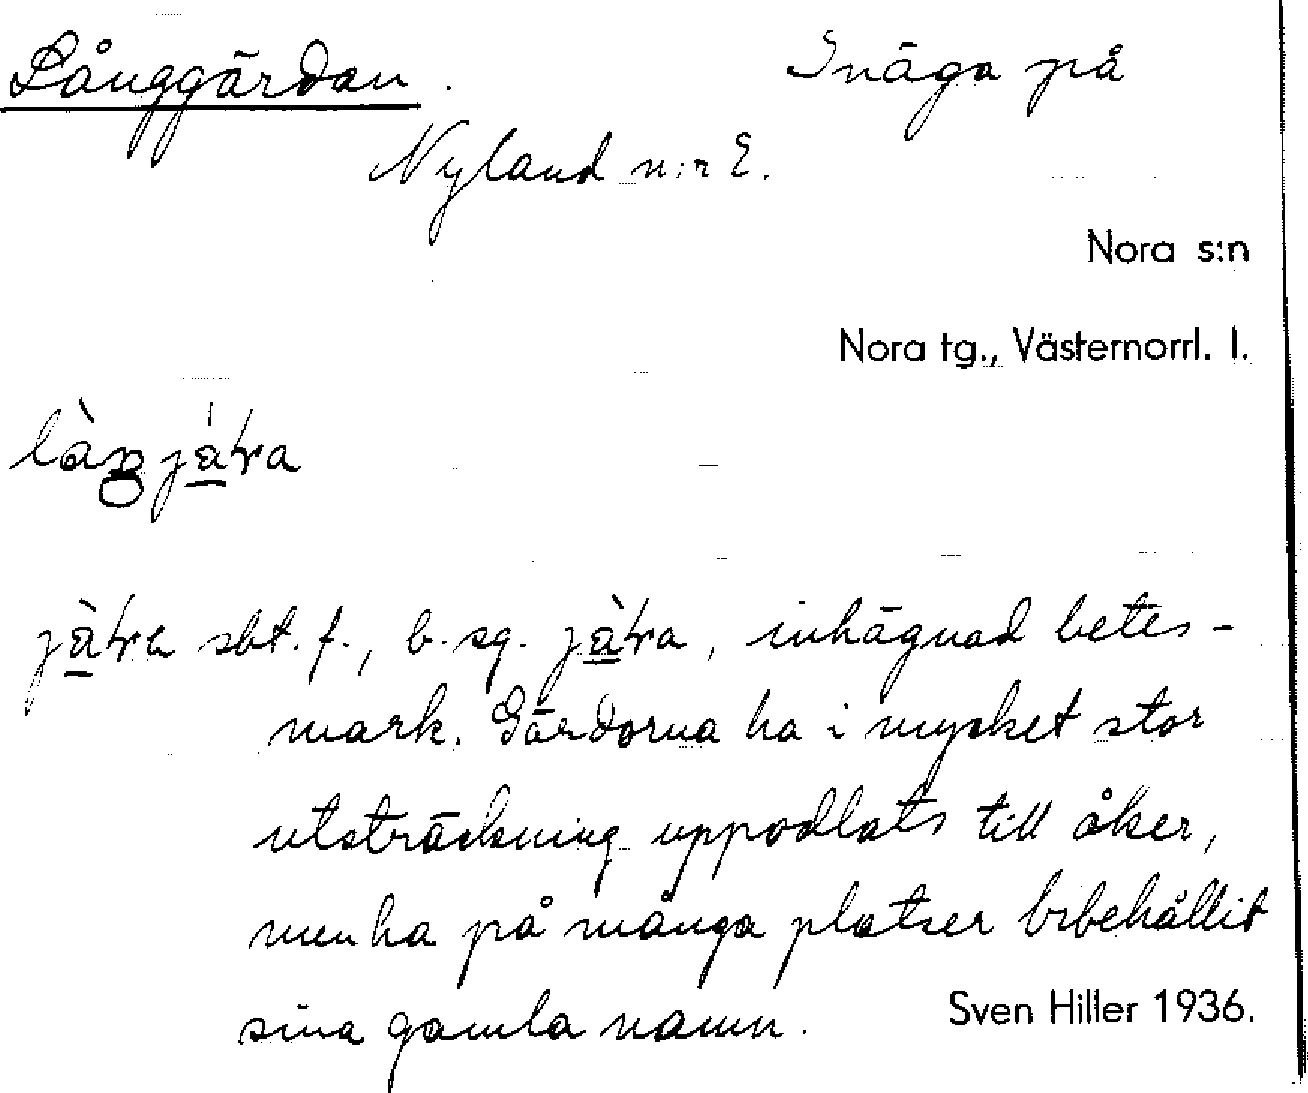 Långgärdan. Inäga på
Nyland n:r 2.
Nora s:n
Nora tg., Västernorrl. l.
jä̀ra sbt. f., b. sg. jä̀ra, inhägnad betes-
mark. Gärdorna ha i mycket stor
utsträckning uppodlats till åker,
men ha på många platser bibehållit
sina gamla namn.
Sven Hiller 1936.